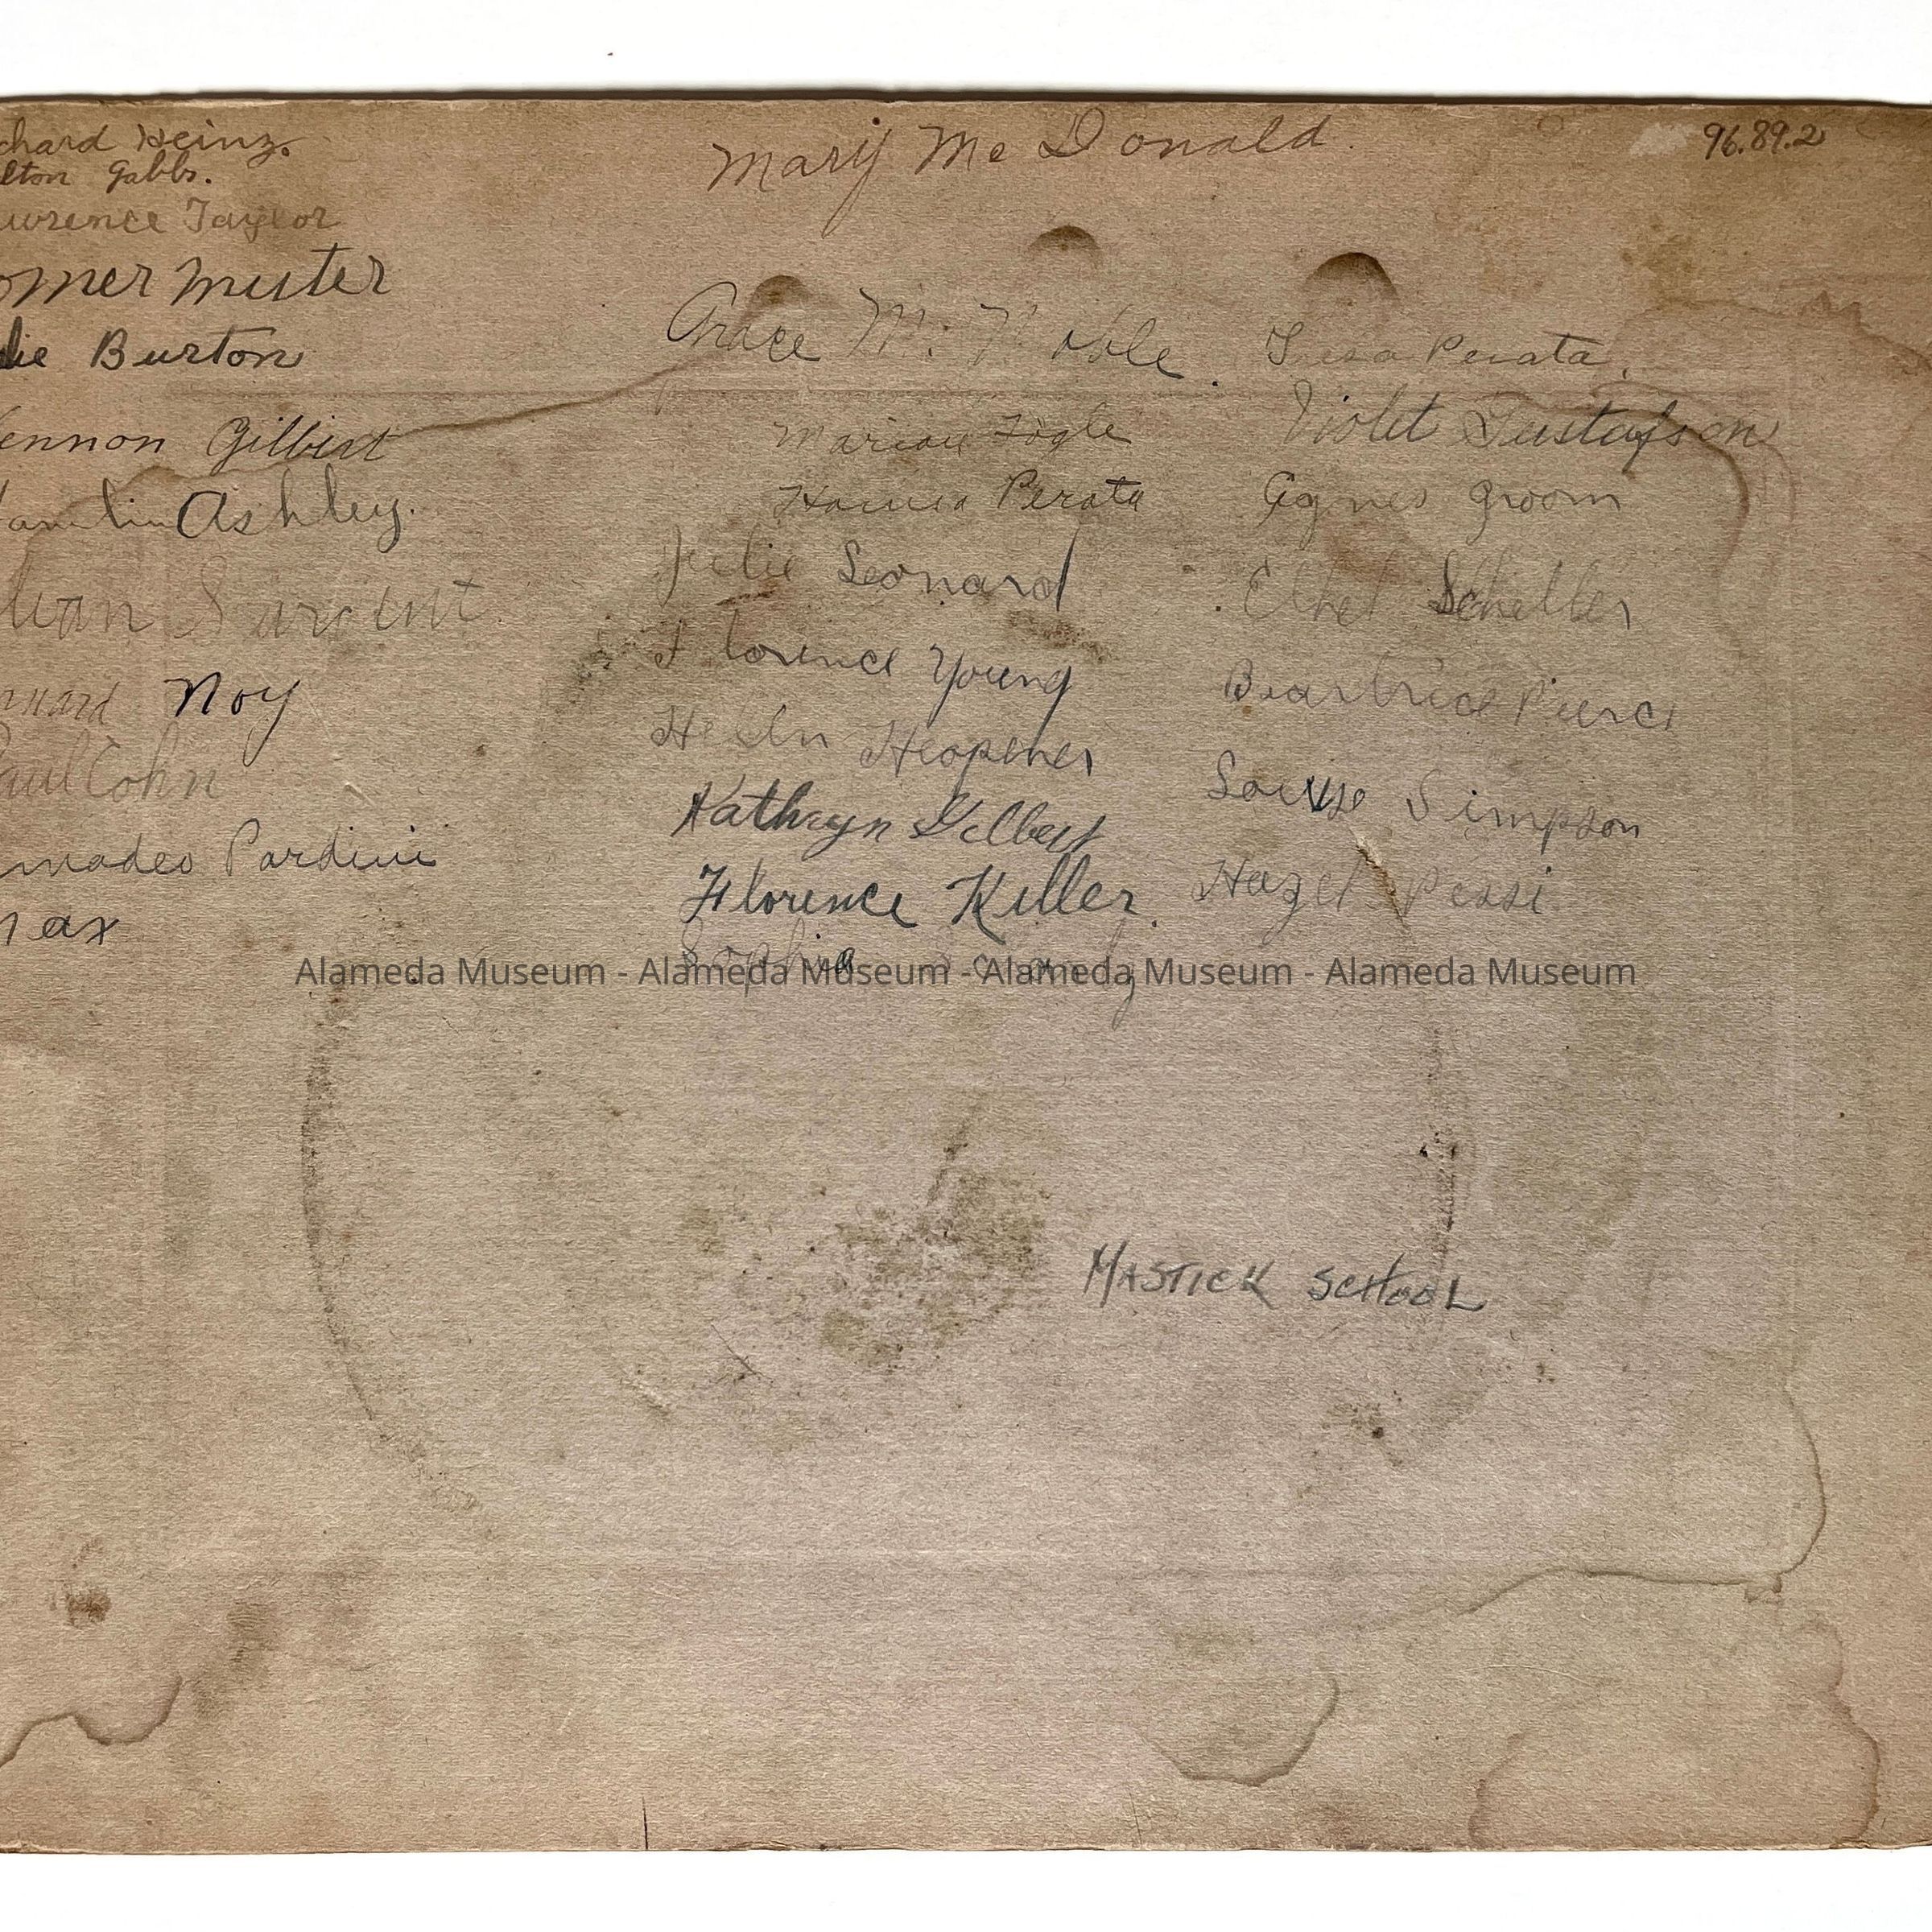 chard Heinz.
lton Gabbs.
awrence Taylor
omer Muter
die Burton
ennon Gilbert
Ashley.
Noy
Paul Cohn
madeo Pardini
ax
Mary McDonald
Grace M.
Marion Fogle
Perata
Julie Leonard
Florence Young
Helen
Kathryn Gilbert
Florence Keller.
Sophia
Perata.
Violet Gustafson
Agnes Groom
Ethel Scheller
Beartrice Pierce
Louise Simpson
Hazel Pessi
96.89.2
Alameda Museum - Alameda Museum - Alameda Museum - Alameda Museum
MASTICK SCHOOL